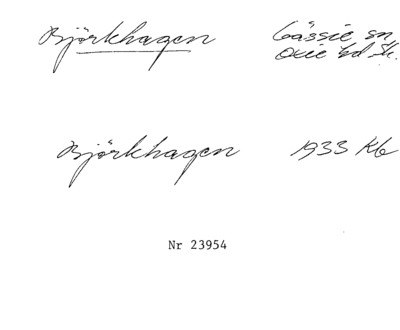 Björkhagen
Gässie sn
Oxie hd Sk.
Björkhagen
1933 Kb
Nr 23954